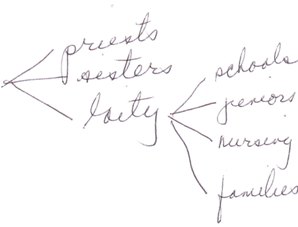 priests
sisters
laity
schools
seniors
nursing
families